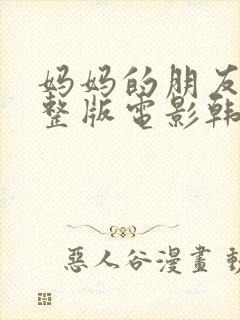 妈妈的朋友
整版電影韩
惡人谷漫畫 動